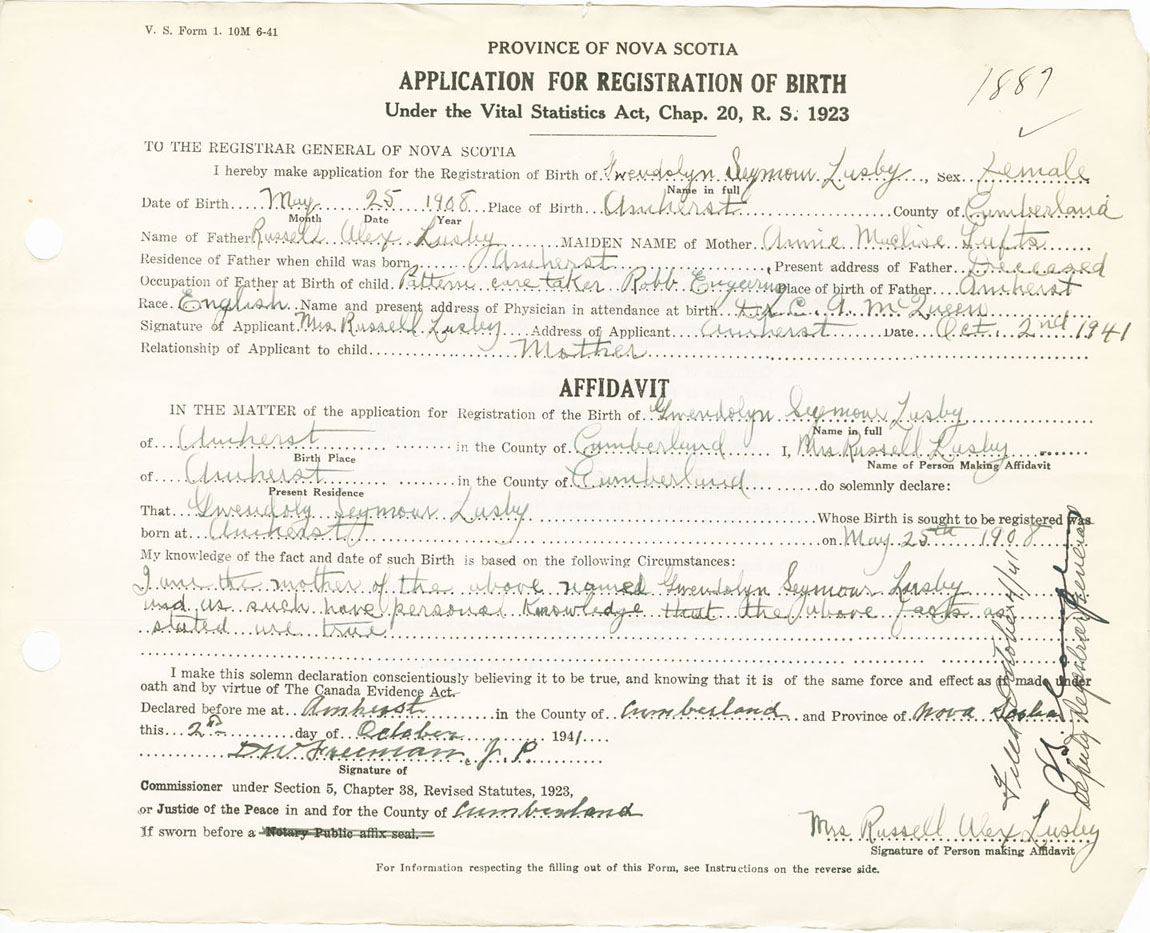 V. S. Form 1. 10M 6-41
PROVINCE OF NOVA SCOTIA
APPLICATION FOR REGISTRATION OF BIRTH
1887
Under the Vital Statistics Act, Chap. 20, R. S. 1923
TO THE REGISTRAR GENERAL OF NOVA SCOTIA
I hereby make application for the Registration of Birth of Gwendolyn Seymour Lusby, Sex Female
Name in full
Date of Birth May 25 1908 Place of Birth Amherst County of Cumberland
Month Date Year
Name of Father Russell Alex Lusby MAIDEN NAME of Mother Annie Tufts
Residence of Father when child was born Amherst, Present address of Father Deceased
Occupation of Father at Birth of child Pattern care taker Robb Place of birth of Father Amherst
Race English Name and present address of Physician in attendance at birth Dr. C. A. McQueen
Signature of Applicant Mrs Russell Lusby Address of Applicant Amherst Date Oct. 2nd 1941
Relationship of Applicant to child Mother
AFFIDAVIT
IN THE MATTER of the application for Registration of the Birth of Gwendolyn Seymour Lusby
Name in full
of Amherst in the County of Cumberland I, Mrs Russell Lusby
Birth Place Name of Person Making Affidavit
of Amherst in the County of Cumberland do solemnly declare:
Present Residence
That Gwendoly Seymour Lusby Whose Birth is sought to be registered was
born at Amherst on May 25th 1908
My knowledge of the fact and date of such Birth is based on the following Circumstances:
I am the mother of the above named Gwendolyn Seymour Lusby
and as such have personal knowledge that the above facts as
stated are true
I make this solemn declaration conscientiously believing it to be true, and knowing that it is of the same force and effect as if made under
oath and by virtue of The Canada Evidence Act.
Declared before me at Amherst in the County of Cumberland and Province of Nova Scotia
this 2nd day of October 1941
D W Freeman, J. P.
Signature of
Commissioner under Section 5, Chapter 38, Revised Statutes, 1923,
or Justice of the Peace in and for the County of Cumberland
If sworn before a Notary Public affix seal.
Mrs Russell Alex Lusby
Signature of Person making Affidavit
For Information respecting the filling out of this Form, see Instructions on the reverse side.
Filed October 4/41
Deputy Registrar General